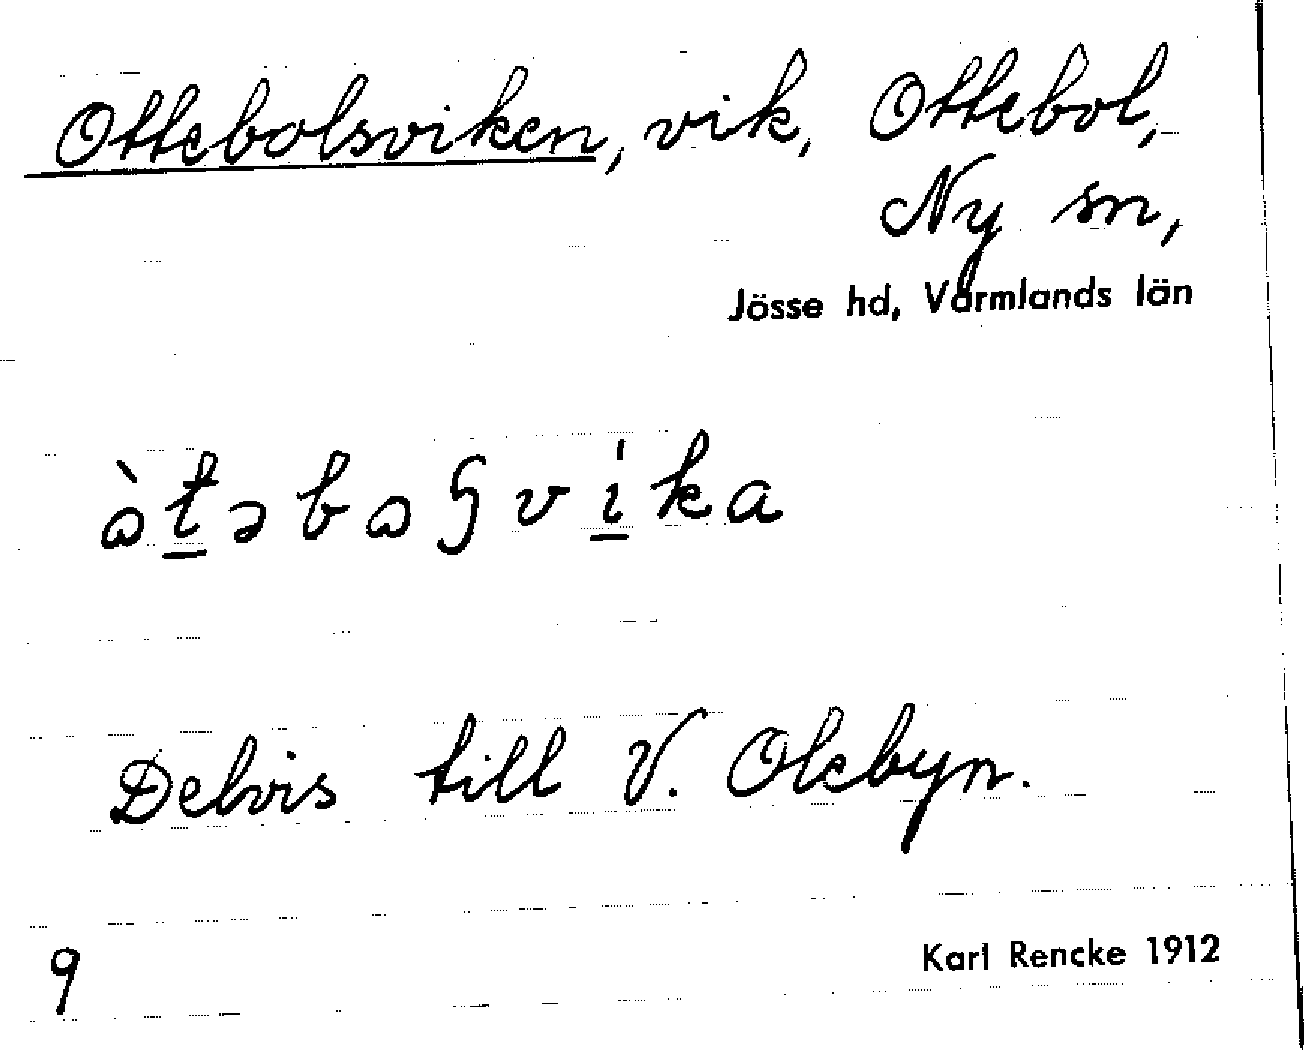 Ottebolsviken, vik, Ottebol,
Ny sn,
Jösse hd, Värmlands län
Delvis till V. Olebyn.
9
Karl Rencke 1912